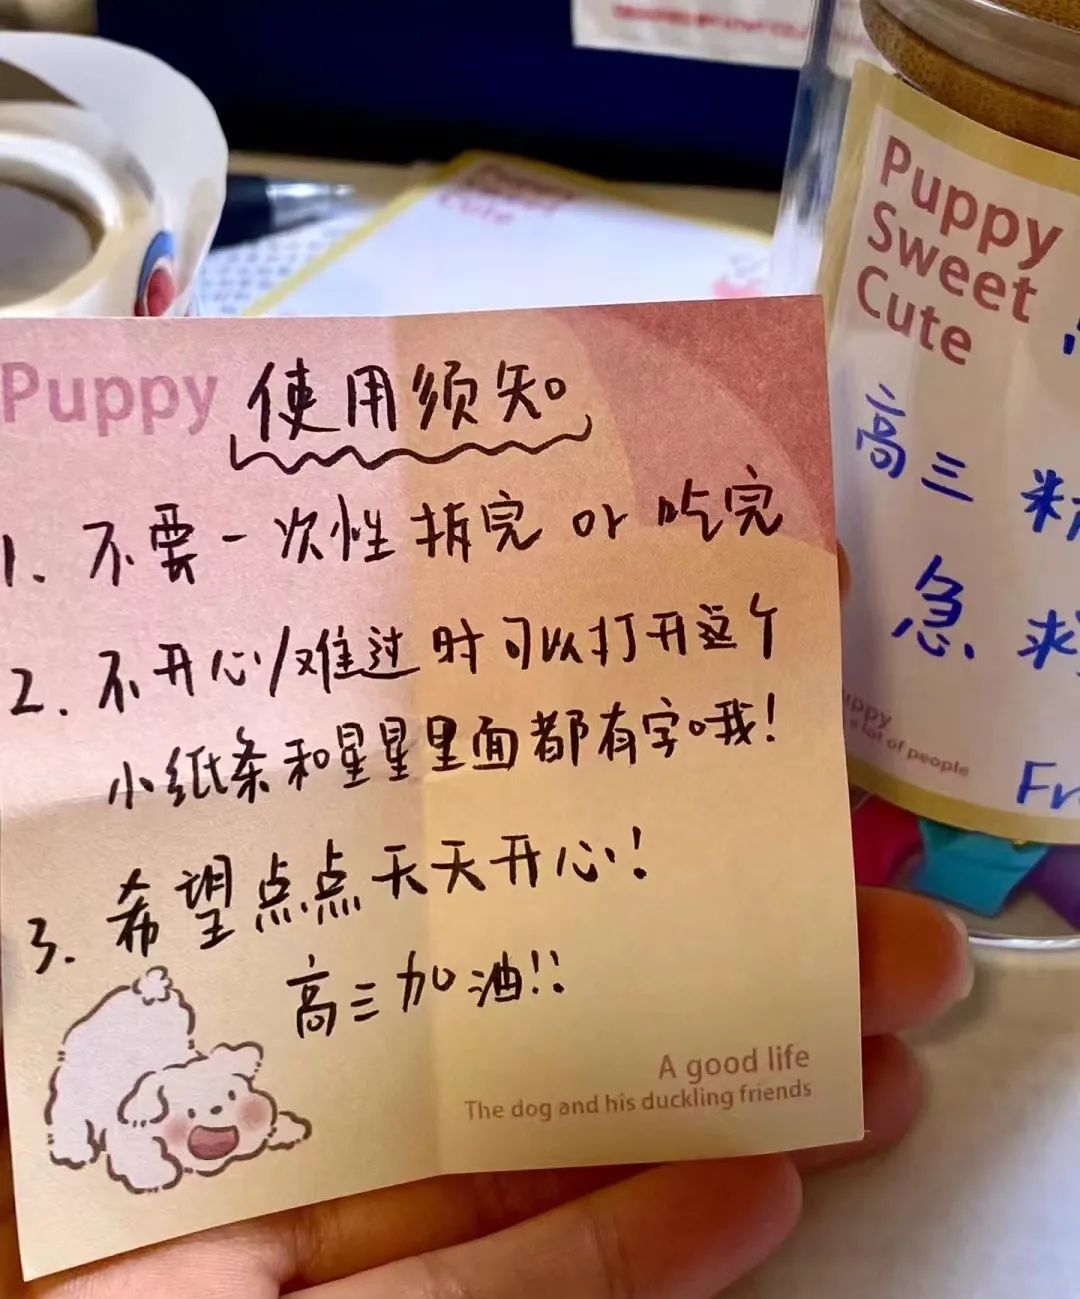 Puppy
Sweet
Cute
高三
急
Fr
Puppy 使用须知
1. 不要一次性拆完 or 吃完
2. 不开心/难过时可以打开这个
小纸条和星星里面都有字哦!
3. 希望点点天天开心!
高三加油!!
A good life
The dog and his duckling friends
Cute
lot of people